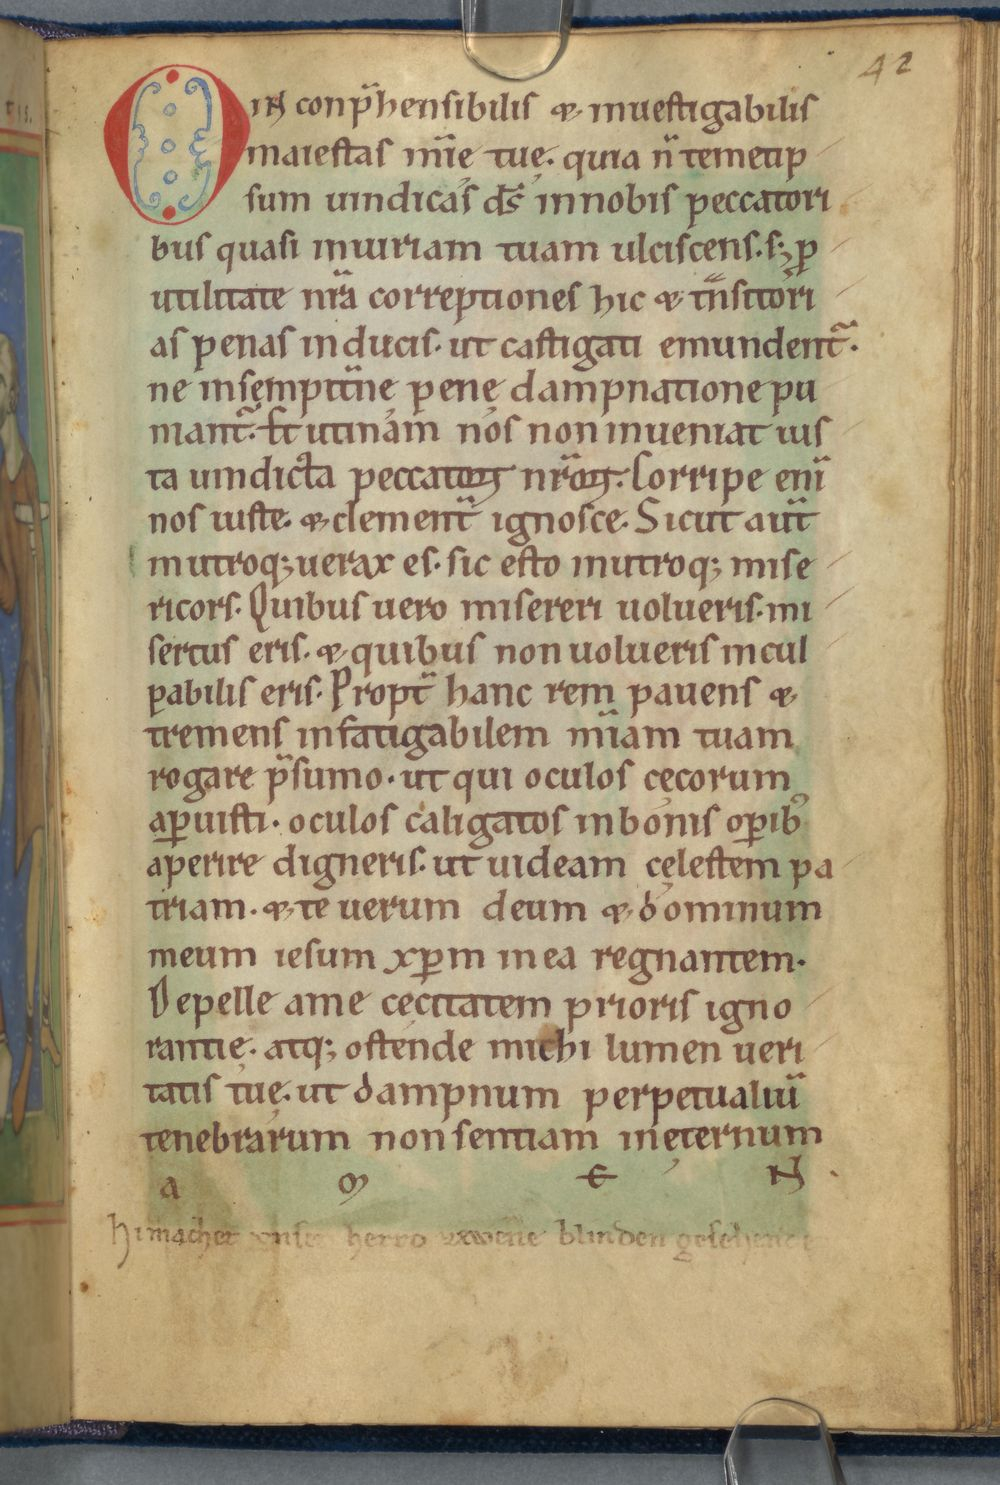 42
O inconp̄hensibilis & inuestigabilis
maiestas mīe tuę. quia n̄ temetip
sum uindicas d̄s innobis peccatori
bus quasi iniuriam tuam ulciscens. s; ꝑ
utilitate nr̄a correptiones hic & tn̄sitori
as penas inducis. ut castigati emundent᷑.
ne insempit̄nę penę dampnatione pu
niant᷑. Et utinam nos non inueniat ius
ta uindicta peccatoꝝ nr̄oꝝ. Corripe eni̅
nos iuste. & clement̄ ignosce. Sicut aut̄
inutroq; uerax es. sic esto inutroq; mise
ricors. Quibus uero misereri uolueris. mi
sertus eris. & quibus non uolueris incul
pabilis eris. Propt̄ hanc rem pauens &
tremens infatigabilem mīam tuam
rogare p̄sumo. ut qui oculos cecorum
aꝑuisti. oculos caligatos inbonis oꝑibꝰ
aperire digneris. ut uideam cęlestem pa
triam. & te uerum deum & dominum
meum iesum xꝑm inea regnantem.
Depelle ame cecitatem prioris igno
rantię. atq; ostende michi lumen ueri
tatis tuę. ut dampnum perpetualiū
tenebrarum non sentiam inęternum
A M E N.
Hi machet unser herro blinden gesehente